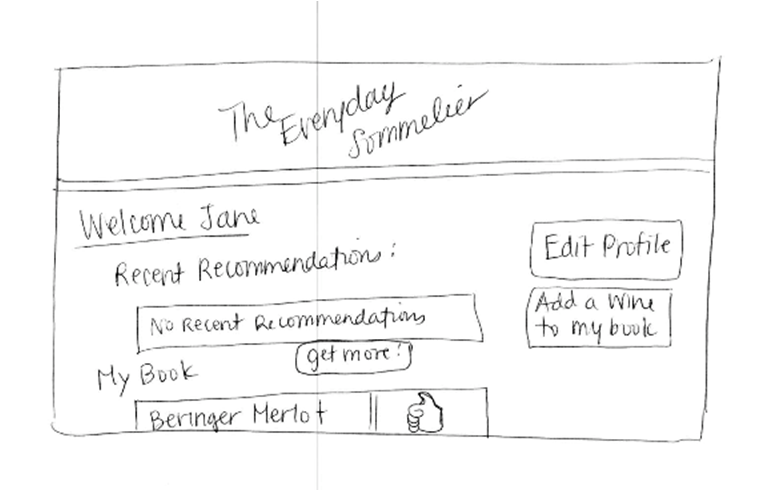 The Everyday Sommelier
Welcome Jane
Edit Profile
Recent Recommendations:
Add a Wine
to my book
No Recent Recommendations
get more!
My Book
Beringer Merlot